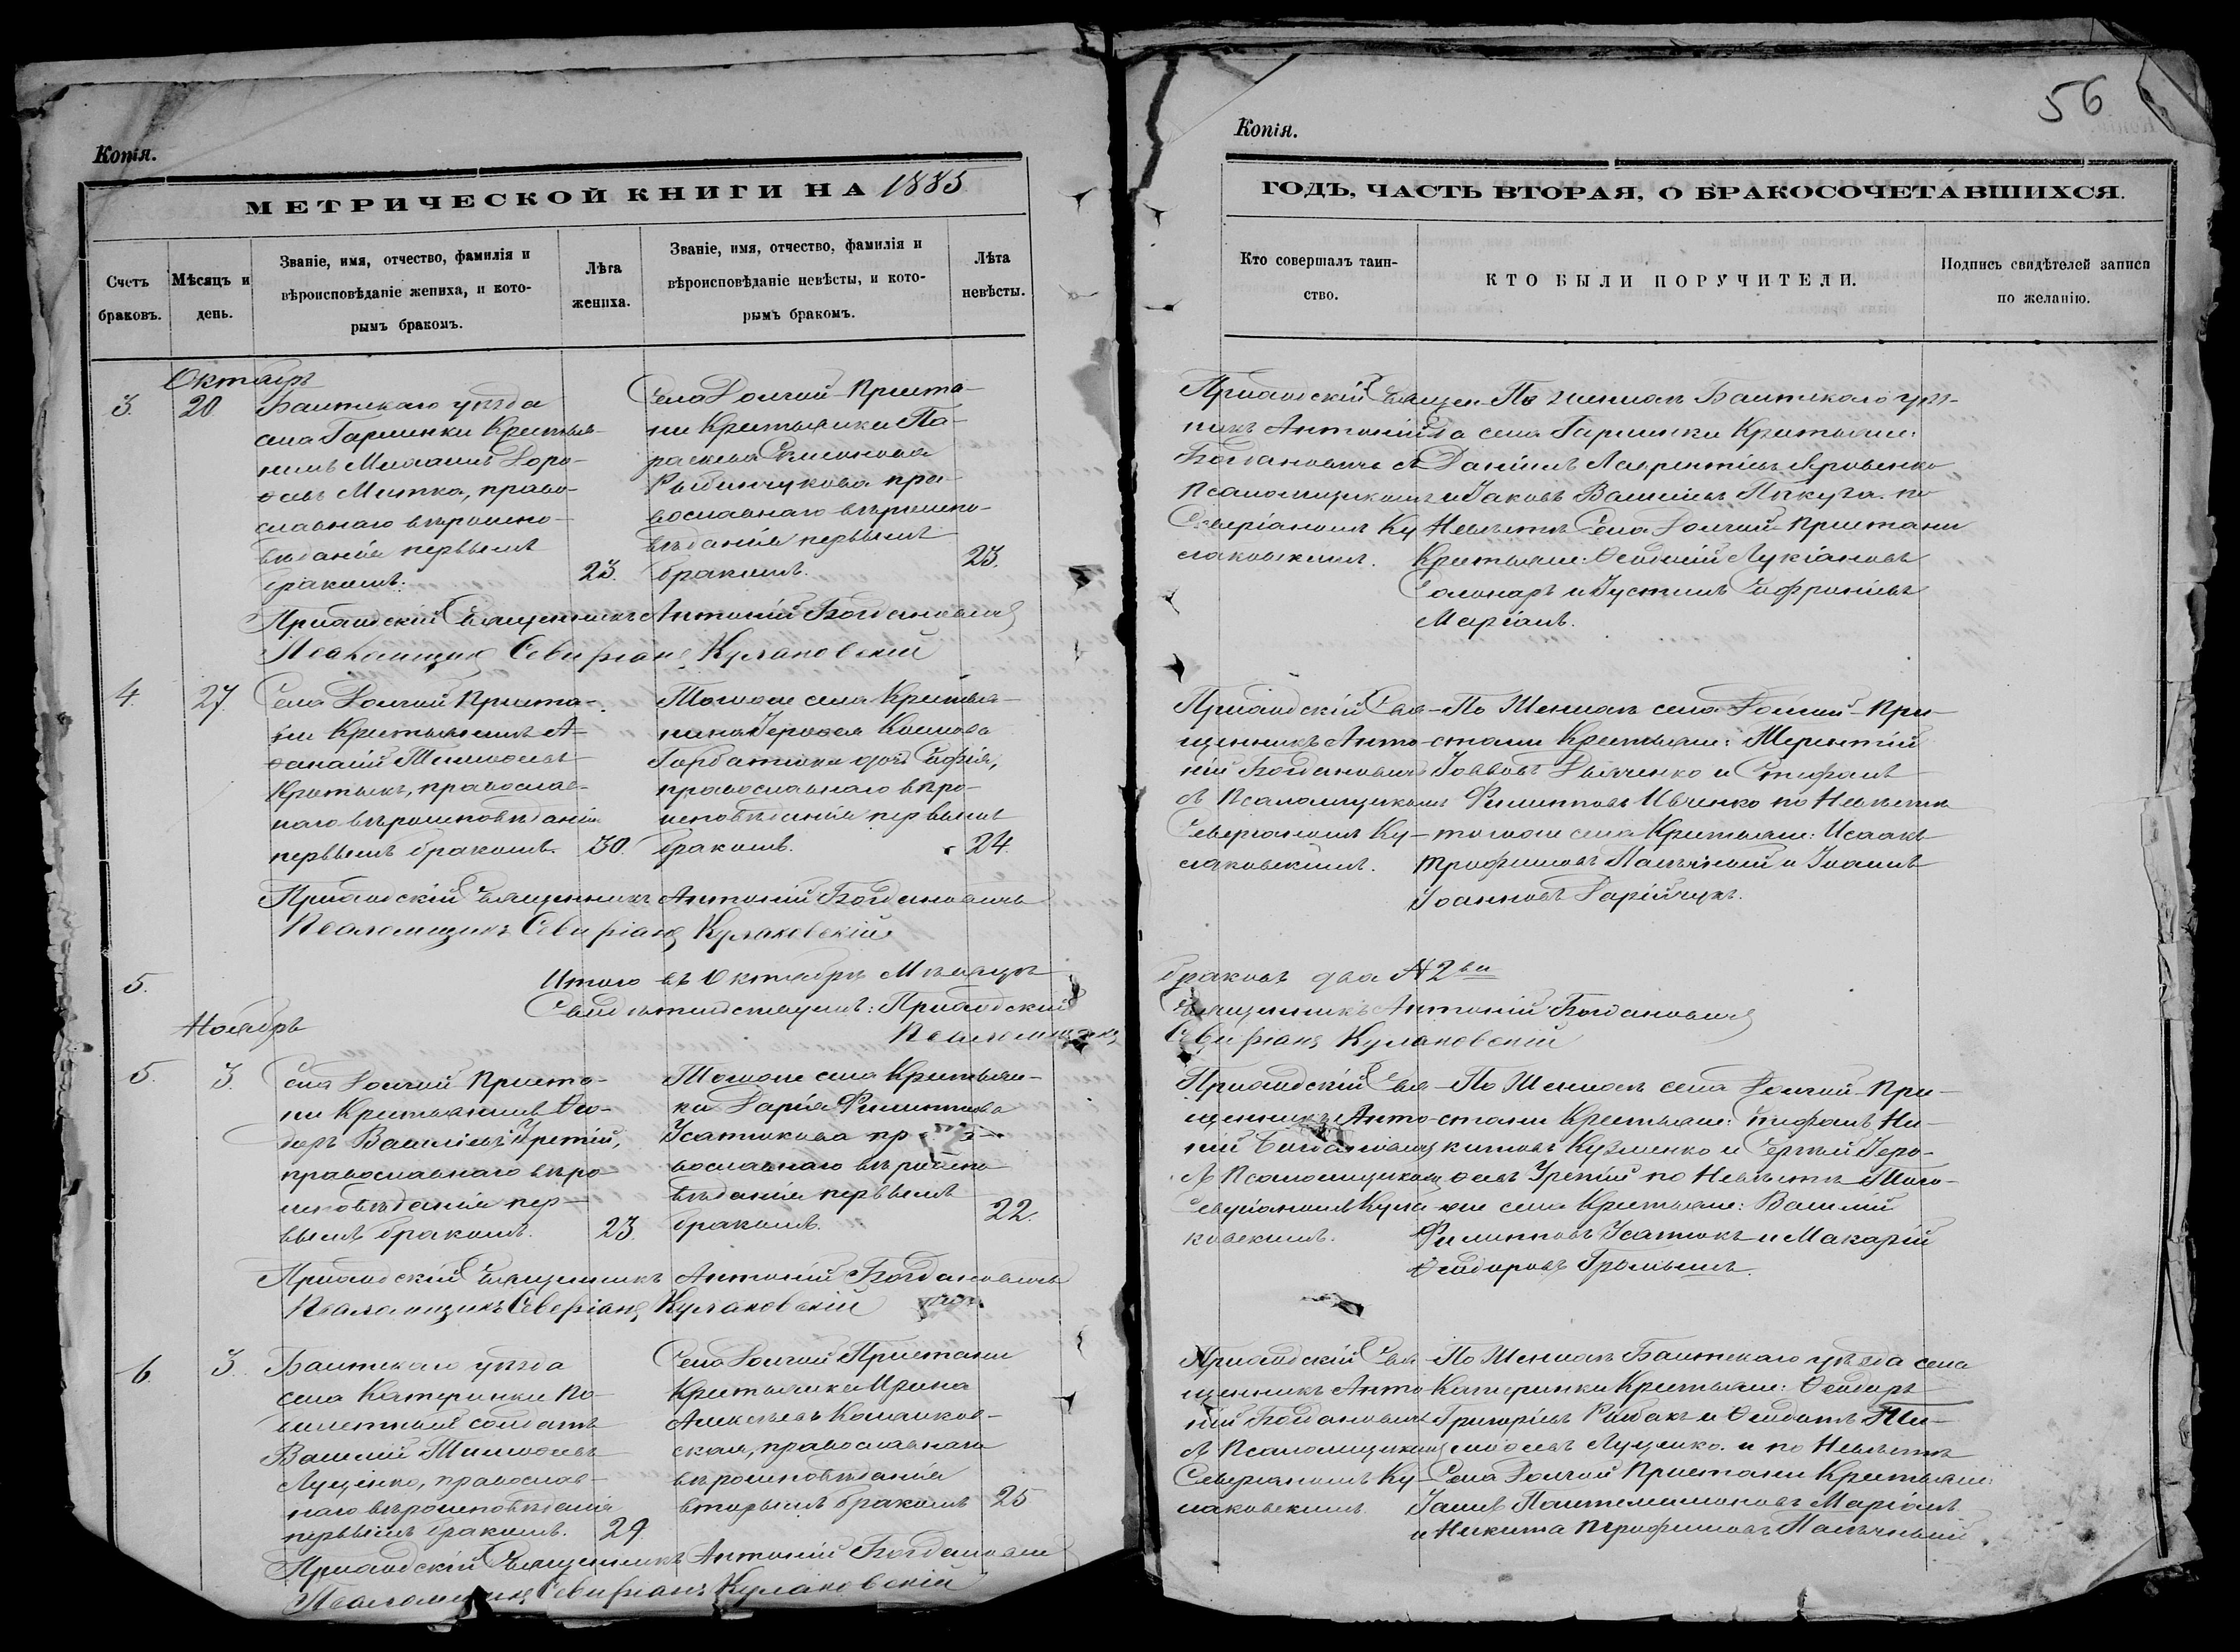 Копія.
МЕТРИЧЕСКОЙ КНИГИ НА 1885
Счетъ браковъ.
Мѣсяцъ и день.
Званіе, имя, отчество, фамилія и
вѣроисповѣданіе жениха, и кото-
рымъ бракомъ.
Лѣта
жениха.
Званіе, имя, отчество, фамилія и
вѣроисповѣданіе невѣсты, и кото-
рымъ бракомъ.
Лѣта
невѣсты.
Октябрь
3. 20.
Балтскаго уѣзда
села Гарминки Крестья-
нинъ Михаилъ Доро-
ѳеевъ Митка, право-
славнаго вѣроиспо-
вѣданія первымъ
бракомъ.
23.
Села Долгой-Приста-
ни Крестьянка Па-
раскева
православнаго вѣроиспо-
вѣданія первымъ
бракомъ.
23.
Приходскій Священникъ Антоній Богдановичъ
Псаломщикъ Северіанъ Кулаковскій
4. 27.
Села Долгой Приста-
ни Крестьянинъ А-
ѳанасій Тимоѳеевъ
православ-
наго вѣроисповѣданія
первымъ бракомъ.
30.
Тогоже села Крестья-
нина Іероѳея
дочь Софія,
православнаго вѣро-
исповѣданія первымъ
бракомъ.
24.
Приходскій Священникъ Антоній Богдановичъ
Псаломщикъ Северіанъ Кулаковскій
5.
Итого въ Октябрѣ Мѣсяцѣ
Свидѣтельствуемъ: Приходскій
Псаломщикъ
Ноябрь
5. 3.
Села Долгой-Приста-
ни Крестьянинъ Ѳео-
доръ Василіевъ Третій,
православнаго вѣро
исповѣданія пер-
вымъ бракомъ.
23.
Тогоже села Крестьян-
ка Дарія Филиппова
Усатюкова пр
вославнаго вѣроиспо
вѣданія первымъ
бракомъ.
22.
Приходскій Священникъ Антоній Богдановичъ
Псаломщикъ Северіанъ Кулаковскій
6. 3.
Балтскаго уѣзда
села Катеринки По-
билетный солдатъ
Василій Тимоѳеевъ
Луценко, православ-
наго вѣроисповѣданія
первымъ бракомъ.
29.
Села Долгой Пристани
Крестьянка Ирина
Алексѣева
православнаго
вѣроисповѣданія
вторымъ бракомъ
25
Приходскій Священникъ Антоній Богдановичъ
Псаломщикъ Северіанъ Кулаковскій
56
Копія.
ГОДЪ, ЧАСТЬ ВТОРАЯ, О БРАКОСОЧЕТАВШИХСЯ.
Кто совершалъ таин-
ство.
КТО БЫЛИ ПОРУЧИТЕЛИ.
Подпись свидѣтелей записи
по желанію.
Приходскій Священ-
никъ Антоній
Богдановичъ съ
Псаломщикомъ
Северіаномъ Ку
лаковскимъ.
По Женихѣ Балтскаго уѣз-
да села Гарминки Крестьяне:
Даніилъ Лаврентіевъ Яровенко
и Іаковъ Василіевъ по
Невѣстѣ Села Долгой-Пристани
Крестьяне: Лукіановъ
и Іустинъ Софроніевъ
Маріанъ.
Приходскій Свя-
щенникъ Анто-
ній Богдановичъ
съ Псаломщикомъ
Северіаномъ Ку-
лаковскимъ.
По Женихѣ села Долгой-При-
стани Крестьяне: Терентій
Іоввовъ Дьяченко и Стефанъ
Филипповъ Ивченко по Невѣстѣ
тогоже села Крестьяне: Исаакъ
Трофимовъ и Іоаннъ
Іоанновъ
браковъ два № 2ва
Священникъ Антоній Богдановичъ
Северіанъ Кулаковскій
Приходскій Свя-
щенникъ Анто-
ній Богдановичъ
съ Псаломщикомъ
Северіаномъ Кула
ковскимъ.
По Женихѣ села Долгой-При-
стани Крестьяне: Стефанъ Ни-
китовъ Кузменко и Сергѣй Іеро-
ѳеевъ Третій по Невѣстѣ Того-
же села Крестьяне: Василій
Филипповъ Усатюкъ и Макарій
Ѳеодоровъ
Приходскій Свя-
щенникъ Анто
ній Богдановичъ
съ Псаломщикомъ
Северіаномъ Ку-
лаковскимъ
По Женихѣ Балтскаго уѣзда села
Катеринки Крестьяне: Ѳеодоръ
Григоріевъ Рыбакъ и Ѳеодотъ Ти-
моѳеевъ Луценко. и по Невѣстѣ
Села Долгой Пристани Крестьяне:
Іаннъ Пантелимоновъ Маріанъ
и Никита Трофимовъ